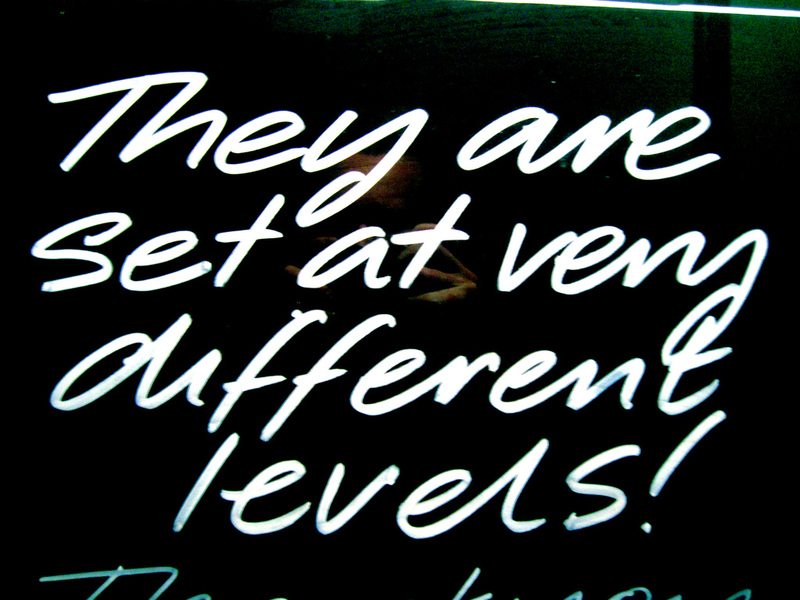 They are
set at very
different
levels!